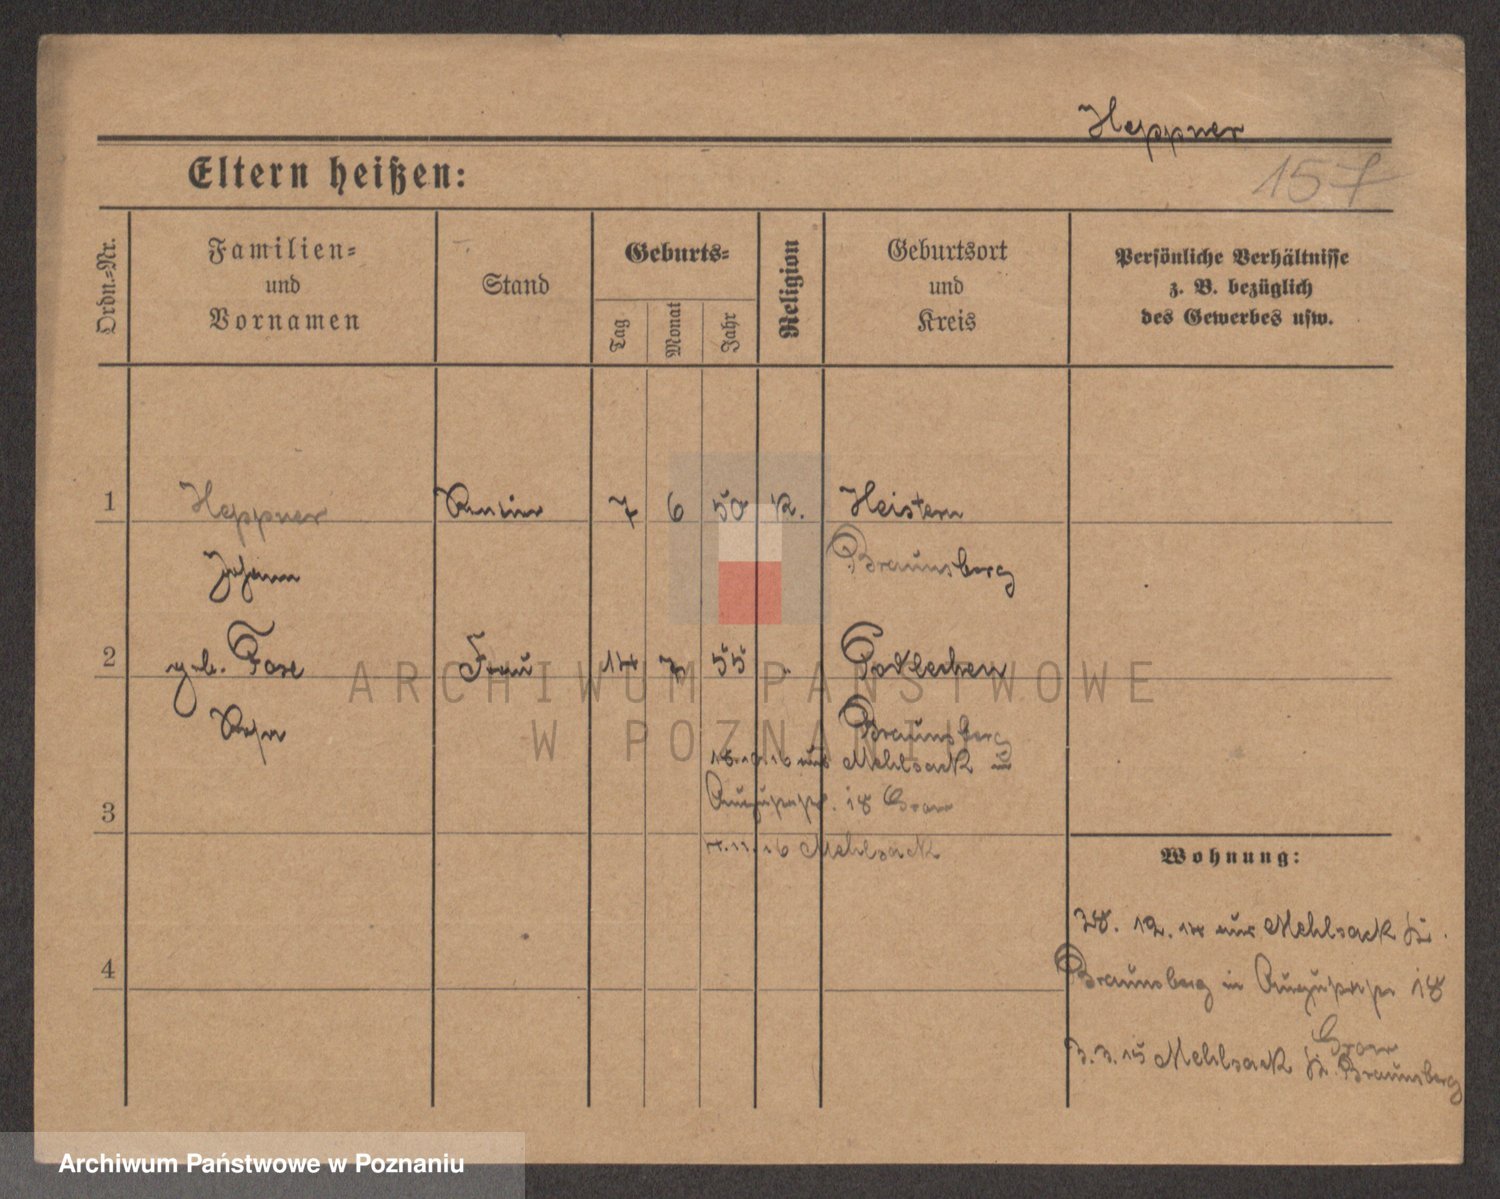 Heppner
157
Eltern heißen:
Ordn.-Nr.
Familien-
und
Vornamen
Stand
Geburts-
Tag
Monat
Jahr
Religion
Geburtsort
und
Kreis
Persönliche Verhältnisse
z. B. bezüglich
des Gewerbes usw.
1 Heppner Rentier 7 6 50 K. Heistern
Johann Braunsberg
2 geb. Fox Frau 14 7 55
Rosa Braunsberg
16 aus Mehlsack in
18
3
4.11.16 Mehlsack
Wohnung:
28. 12. 14 aus Mehlsack Kr.
4
Braunsberg in 18
3. 3. 15 Mehlsack Kr. Braunsberg
ARCHIWUM PAŃSTWOWE
W POZNANIU
Archiwum Państwowe w Poznaniu